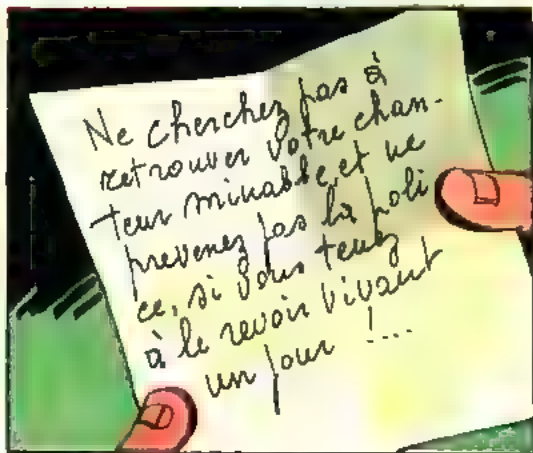 Ne cherchez pas à
retrouver votre chan-
teur minable, et ne
prevenez pas la poli
ce, si vous tenez
à le revoir vivant
un jour !....